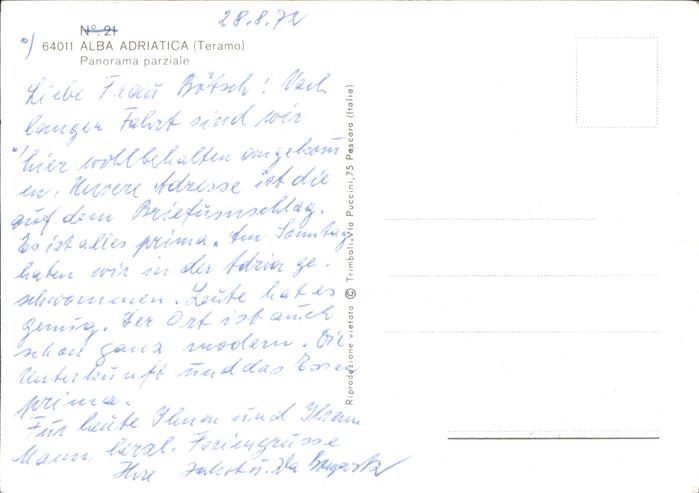 28.8.72
N°. 21
64011 ALBA ADRIATICA (Teramo)
Panorama parziale
Liebe Frau Bötsch! Nach
langer Fahrt sind wir
hier wohlbehalten angekom
en. Unsere Adresse ist die
auf dem Briefumschlag.
Es ist alles prima. Am Sonntag
haben wir in der Adria ge-
schwommen. Leute hat es
genug. Der Ort ist auch
schon ganz modern. Die
Unterkunft und das Essen
prima.
Für heute Ihnen und Ihrem
Mann herzl. Feriengrüsse
Ihre Jakob u. Ida
Riproduzione vietata © Trimboli, Via Puccini, 75 Pescara (Italia)